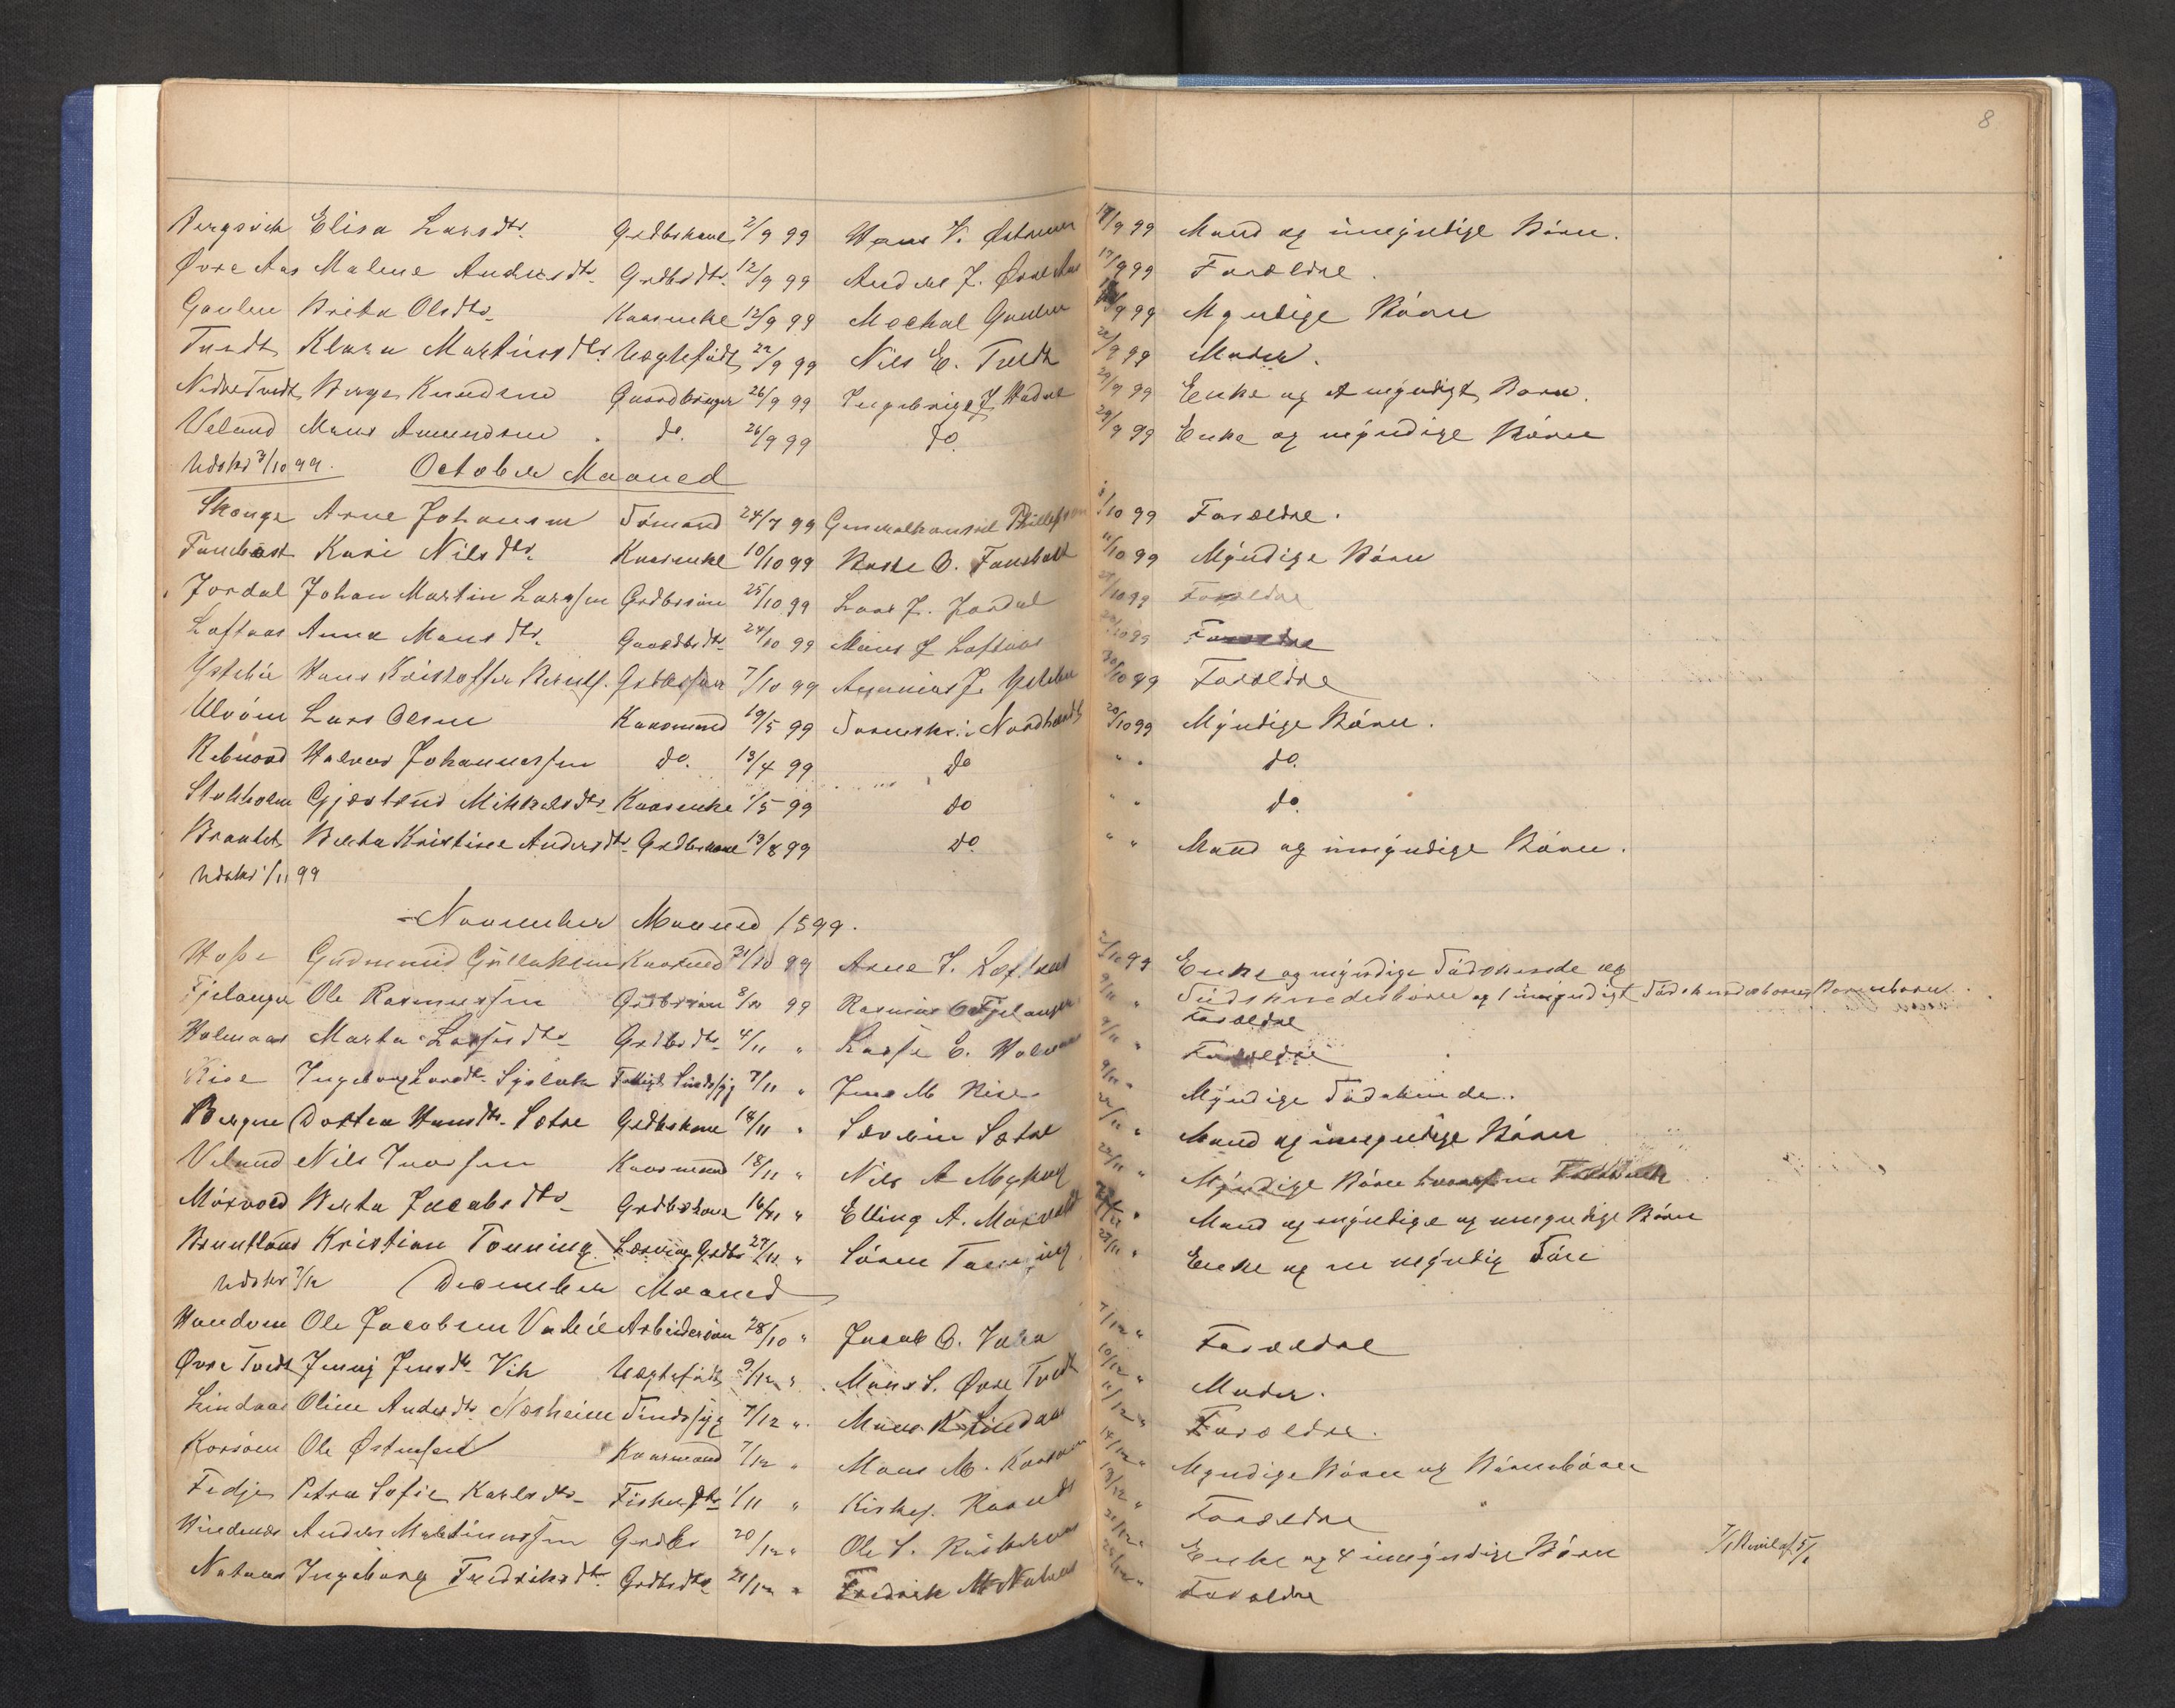 8
Bergsvik Elisa Larsdtr. Grdbrkone 2/9 99 Hans V. 17/9 99 Mand og umyndige Börn.
Øvre Aas Malene Andersdtr. Grdbrdtr. 12/9 99 Anders J. Øvre Aas 17/9 99 Forældre.
Gaulen Brita Olsdtr. Kaarenke 12/9 99 Mechal Gaulen /9 99 Myndige Börn
Tvedt Klara Martinsdtr. Uægtefödt 22/9 99 Nils E. Tvedt 22/9 99 Moder.
Nedre Tvedt Børge Knudsen Gaardbruger 26/9 99 29/9 99 Enke og et myndigt Barn.
Veland Mons Amundsen do. 26/9 99 do. 29/9 99 Enke og myndige Börn
Udskr 3/10 99. October Maaned
Skauge Arne Johansen Sömand 24/7 99 Generalkonsul /10 99 Forældre.
Kari Nilsdtr. Kaarenke 10/10 99 11/10 99 Myndige Börn
Jordal Johan Martin Larssen Grdbrsön 25/10 99 Lars J. Jordal /10 99 Forældre
Loftaas Anna Monsdtr. Gaardbrdtr. 24/10 99 Mons J Loftaas /10 99 Forældre
Ystebö Hans Kristoffer Grdbrsön 7/10 99 Ananias J. Ystebö 30/10 99 Forældre
Ulvöen Lars Olsen Kaarmand 19/5 99 Sorenskr. i Nordhordl 20/10 99 Myndige Börn.
Rebnord Halvor Johannessen do. 13/4 99 do " " do.
Stokholm Gjertrud Mikkelsdtr. Kaarenke /5 99 do " " do.
Brautet Berta Kristine Andersdtr. Grdbrkone 13/8 99 do. " " Mand og umyndige Börn.
Udskr 1/11 99
November Maaned 1899.
Hope Gudmund Gullaksen Kaarmand 31/10 99 Arne J. Loftaas 2/11 99 Enke og myndige Södskende og
Södskendebörn og 1 umyndigt Södskendebarns Barnebarn.
Fjelanger Ole Rasmussen Grdbrsön 8/11 99 Rasmus O Fjelanger 9/11 " Forældre
Holmaas Marta Lassesdtr. Grdbrdtr. 4/11 " Lasse E. Holmaas 9/11 " Forældre
Rise Ingeborg Larsdtr. Fattigl. Sindssyg 7/11 " Jens M Rise 9/11 " Myndige Södskende.
Bergene Dortea Hansdtr. Sætre Grdbrkone 18/11 " Severin Sætre 22/11 " Mand og umyndige Börn
Veland Nils Ivarssen Kaarmand 18/11 " Nils A Myking 22/11 " Myndige Börn
Mörvord Berta Jacobsdtr. Grdbrkone 16/11 " Elling A. Mörvord " Mand og myndige og umyndige Börn
Kristian Tonning Grdbr 27/11 " Sören Tonning " Enke og en myndig Sön
Udskr 7/12 December Maaned
Ole Jacobsen Arbeidersön 28/10 " Jacob O. 7/12 " Forældre
Øvre Tvedt Jenny Jensdtr. Vik Uægtefödt 9/12 " Mons S. Øvre Tvedt 10/12 " Moder.
Lindaas Oline Andersdtr. Næsheim Sindssyg 7/12 " Mons K Lindaas 11/12 " Forældre.
Korsöen Ole Østensen Kaarmand 7/12 " Mons M. Korsöen 14/12 " Myndige Börn og Börnebörn
Fedje Petra Sofie Karlsdtr. Fiskerdtr. 1/11 " 19/12 " Forældre
Hindenes Anders Martinussen Grdbr 20/12 " Ole S. 21/12 " Enke og 4 umyndige Börn
Nataas Ingeborg Fredriksdtr. Grdbrdtr. 21/12 " Fredrik M Nataas " Forældre